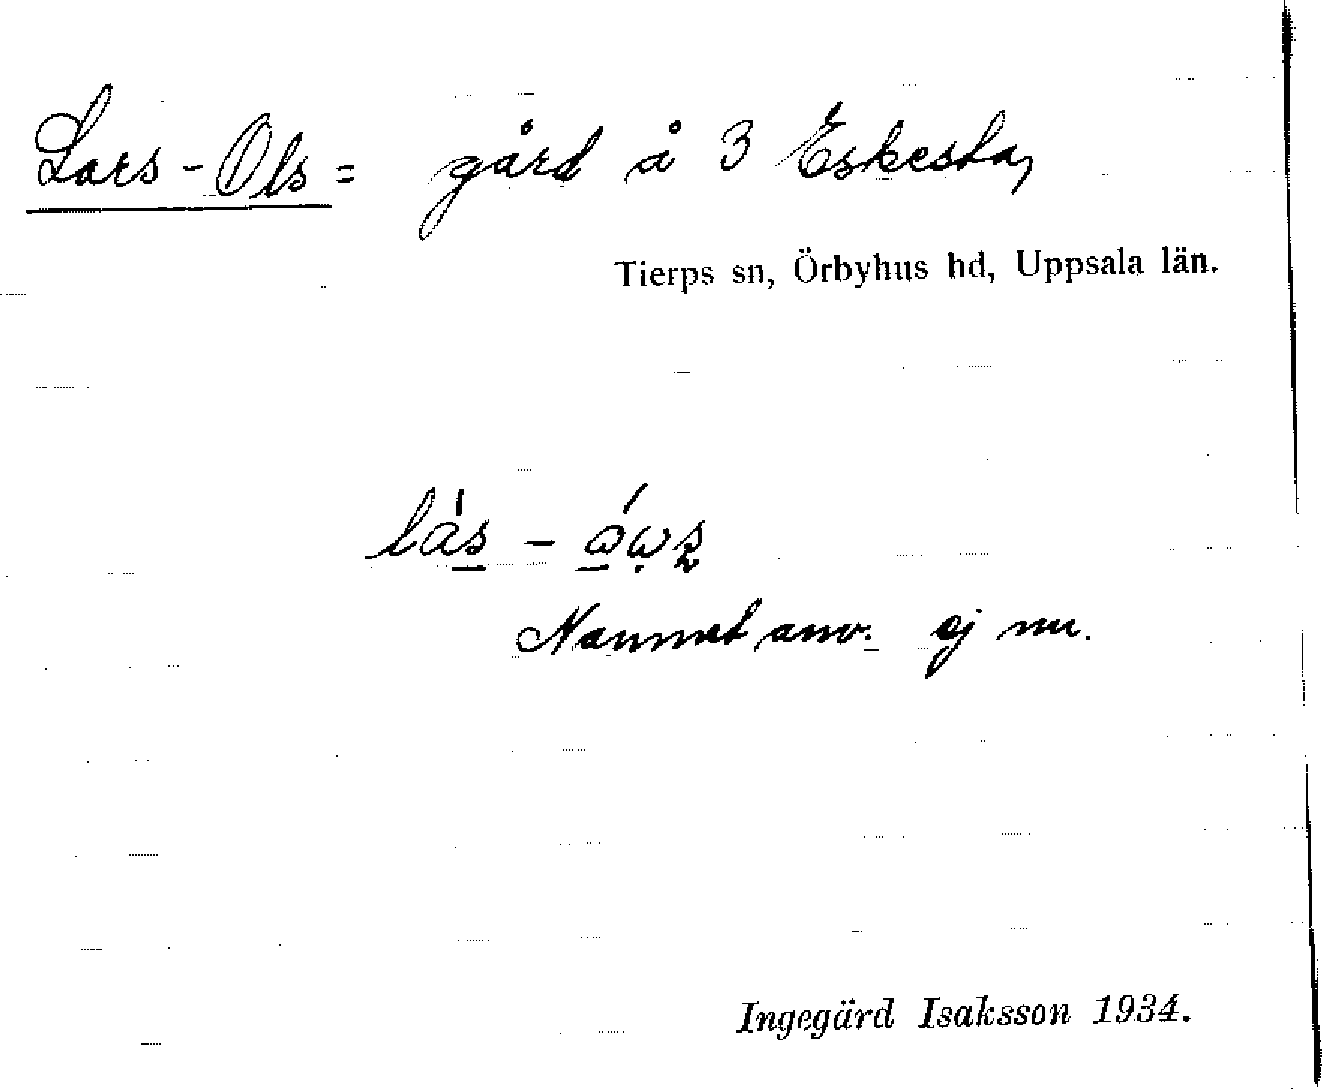 Lars-Ols= gård å 3 Eskesta,
Tierps sn, Örbyhus hd, Uppsala län.
Namnet anv. ej nu.
Ingegärd Isaksson 1934.